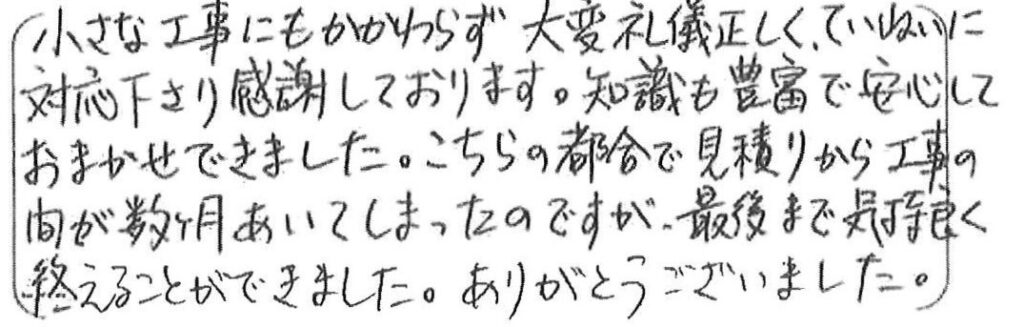 小さな工事にもかかわらず大変礼儀正しく、ていねいに
対応下さり感謝しております。知識も豊富で安心して
おまかせできました。こちらの都合で見積りから工事の
間が数ヶ月あいてしまったのですが、最後まで気持良く
終えることができました。ありがとうございました。